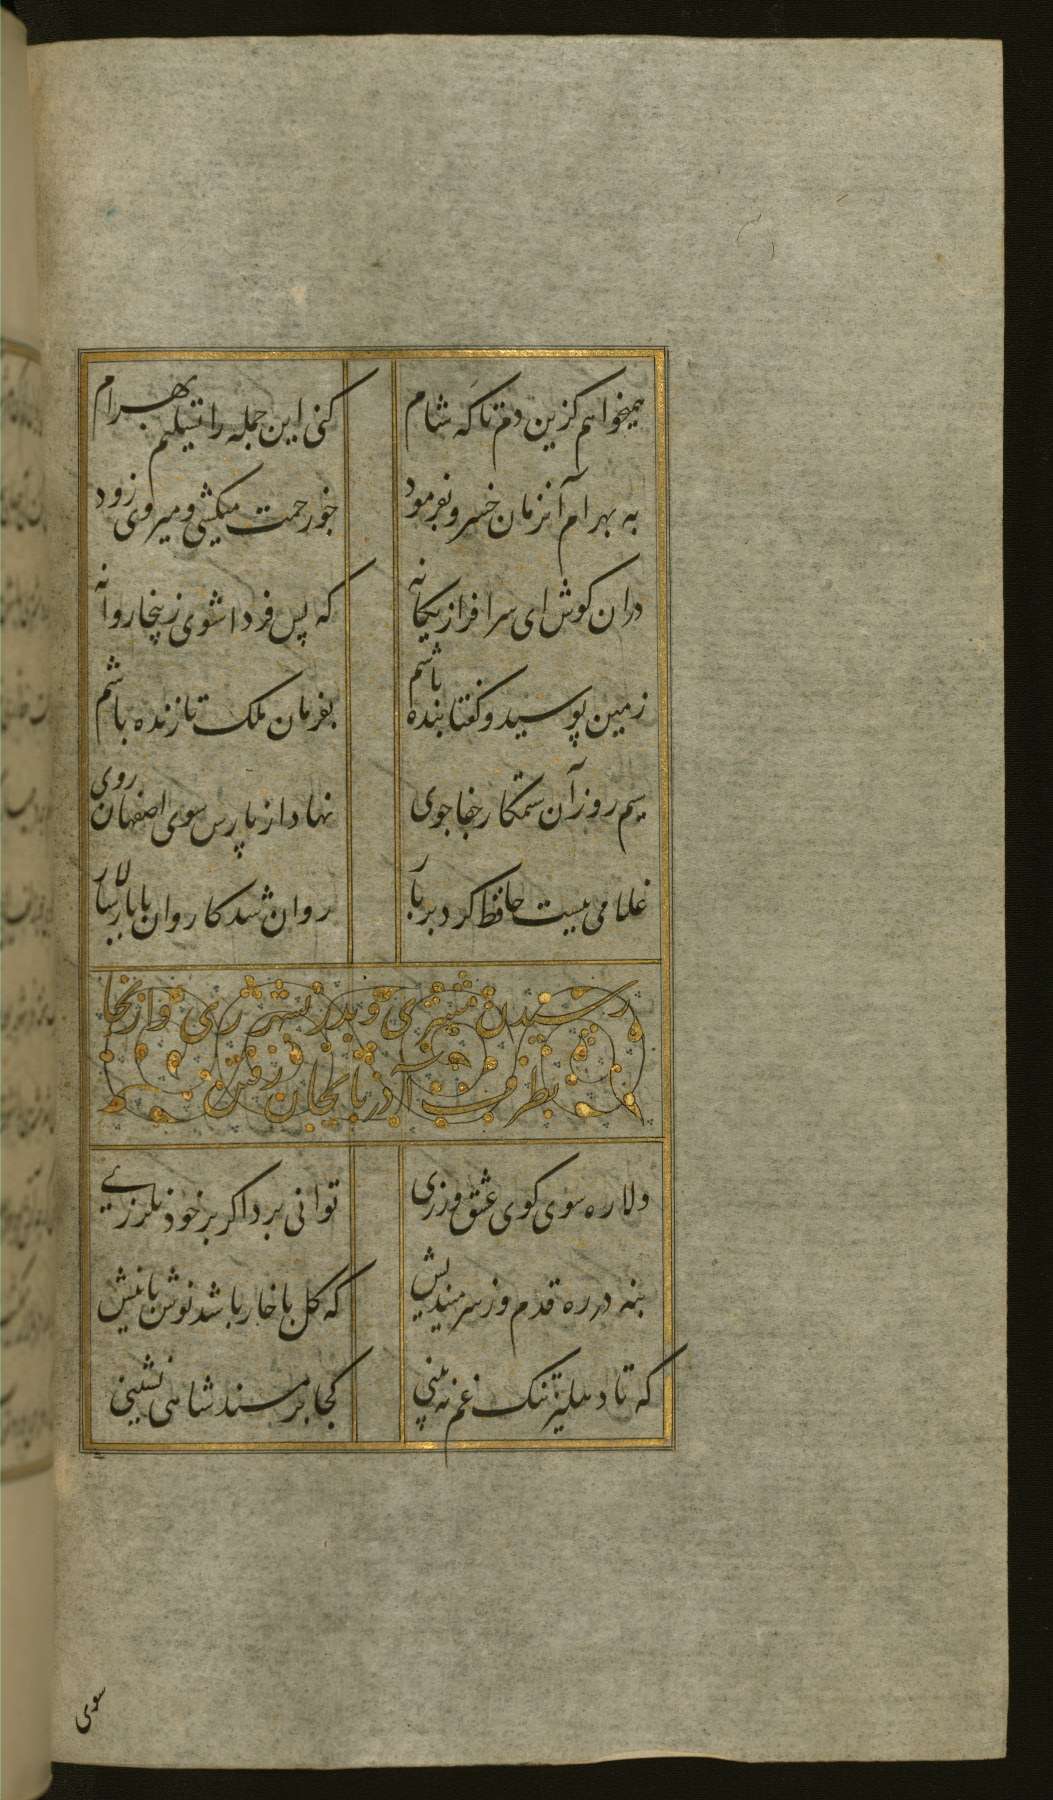 همیخواهم کزین دم تا که شام کنی این جمله را تسلیم بهرام
به بهرام آنزمان خسرو بفرمود خور حمت میکشی و میروی زود
دران کوش ای سرافراز یکانه که پس فردا شوی زینجا روانه
زمین بوسید و گفتا بنده باشم بفرمان ملک تا زنده باشم
سیم روز آن ستمکار جفاجوی نهاد از پارس سوی اصفهان روی
غلامی بیست حافظ کرد بر بار روان شد کاروان با بار سالار
رسیدن مشتری و بدر بشهر ری و از آنجا
بطرف آذربایجان رفتن
دلا ره سوی کوی عشق ورزی توانی برد اگر بر خود نلرزی
بنه در ره قدم وز سر میندیش که کل با خار باشد نوش با نیش
که تا دهلیز تنک غم نه بینی کجا بر مسند شاهی نشینی
سوی